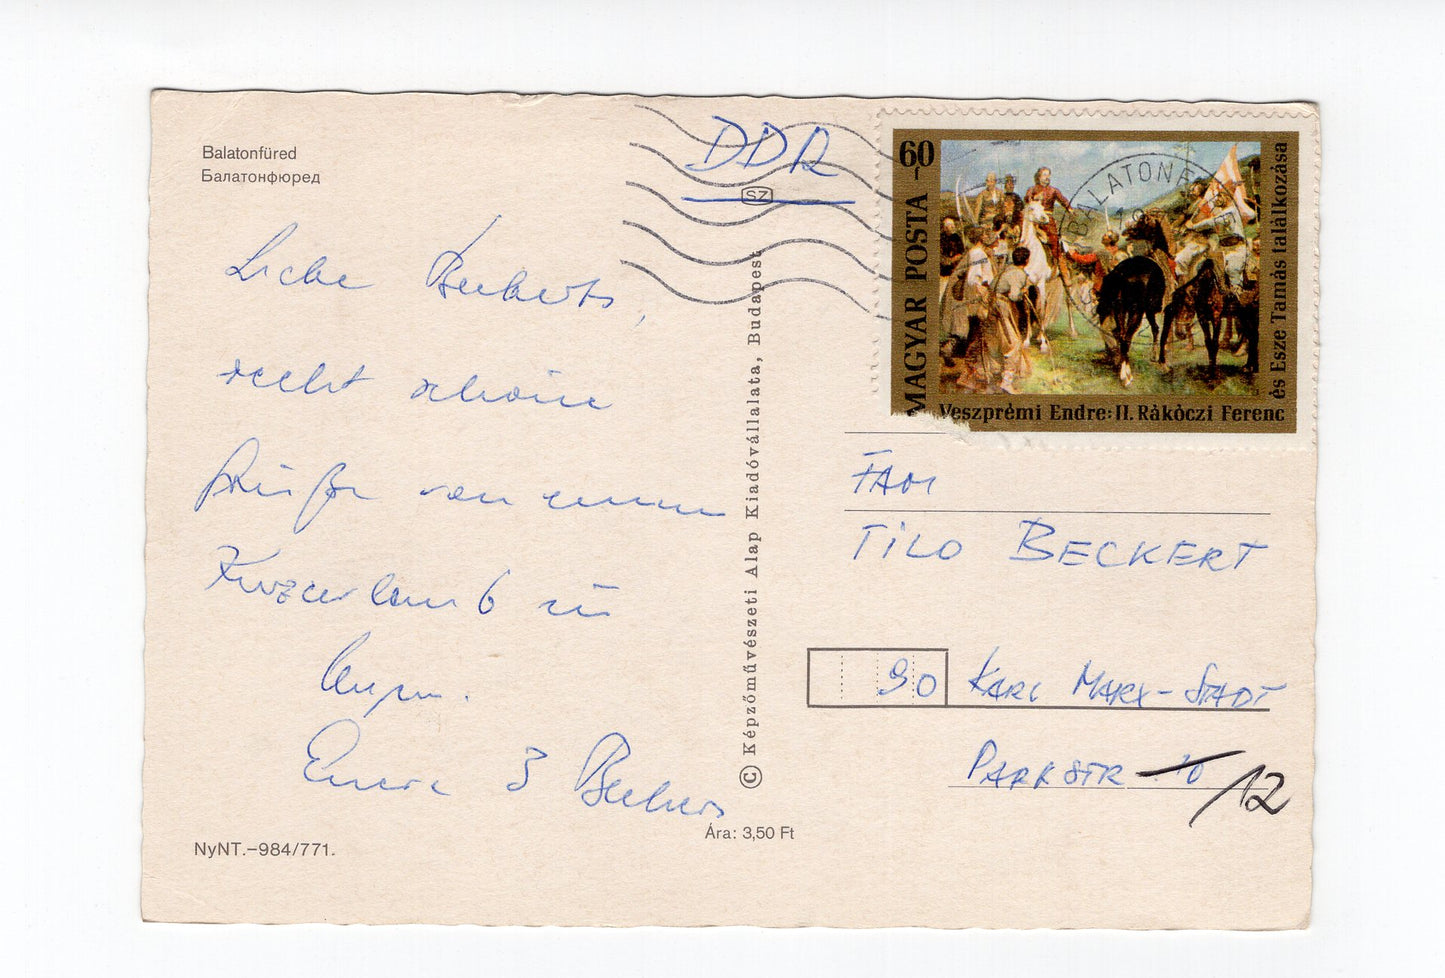 Balatonfüred
Балатонфюред
DDR
SZ
60
MAGYAR POSTA
Veszprémi Endre: II. Rákóczi Ferenc
és Esze Tamás találkozása
BALATONF
Liebe Beckerts,
recht schöne
Grüße von einem
Kurzurlaub in
Ungarn.
Eure 3 Beckers
© Képzőművészeti Alap Kiadóvállalata, Budapest
FAM
TILO BECKERT
90 KARL MARX-STADT
PARKSTR 10 /12
Ára: 3,50 Ft
NyNT.–984/771.